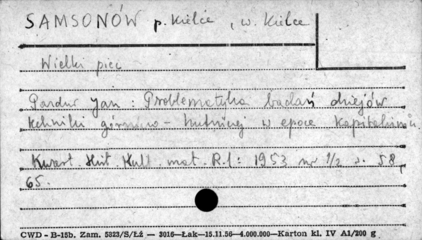 SAMSONÓW p. Kielce, w. Kielce
Wielki piec
Pazdur Jan: Problematyka badań dziejów
techniki górniczo-hutniczej w epoce kapitalizmu.
Kwart. Hist. Kult. mat. R.1: 1953 nr 1/2 s. 58,
65.
CWD - B-15b. Zam. 5823/S/Łż — 3016—Łak—15.11.56—4.000.000—Karton kl. IV A1/200 g